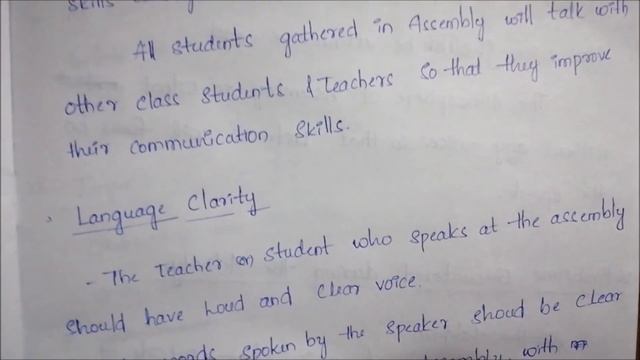 skills
All students gathered in Assembly will talk with
other class students & Teachers so that they improve
their communication skills.
Language Clarity
- The Teacher on student who speaks at the assembly
should have loud and clear voice.
spoken by the speaker shoud be clear
with